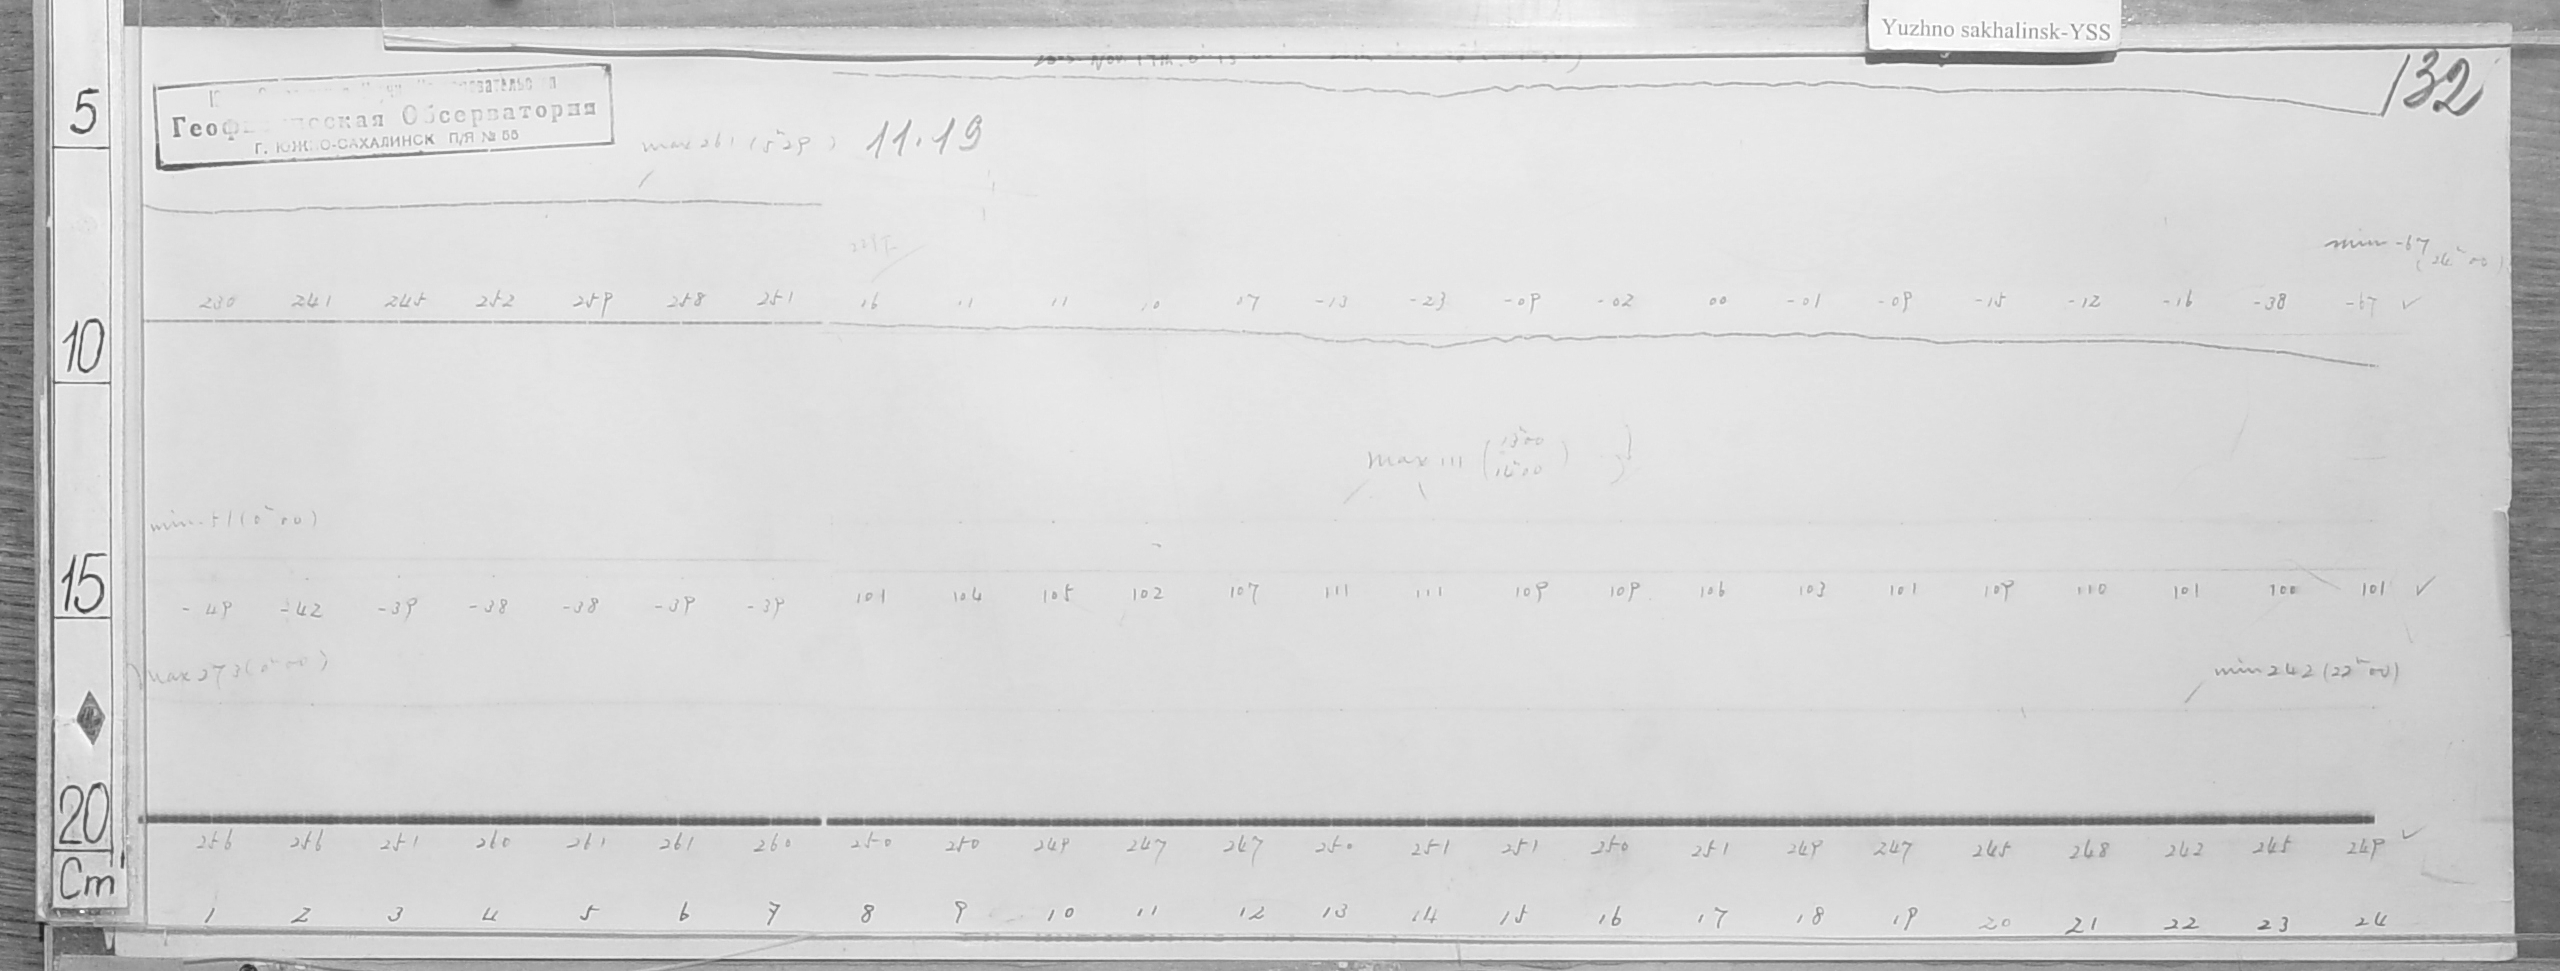 Yuzhno sakhalinsk-YSS
132
Обсерватория
Г. ЮЖНО-САХАЛИНСК П/Я № 55
11.19
max 261 (5h29)
min -67 (24h00)
230 241 245 252 259 258 251 16 11 11 10 07 -13 -23 -09 -02 00 -01 -09 -15 -12 -16 -38 -67 ✓
max 111 (13h00 14h00)
min -51 (0h00)
-49 -42 -39 -38 -38 -39 -39 101 104 105 102 107 111 111 109 109 106 103 101 109 110 101 100 101 ✓
max 273 (0h00)
min 242 (22h00)
256 256 251 260 261 261 260 250 250 249 247 247 250 251 251 250 251 249 247 245 248 242 245 249 ✓
1 2 3 4 5 6 7 8 9 10 11 12 13 14 15 16 17 18 19 20 21 22 23 24
5
10
15
20
Cm